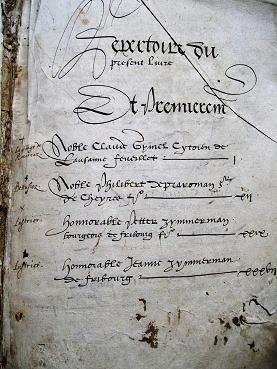 Repertoire du
present livre
Et Premierem
Noble Claude
Cytoien de
Lausanne feuillet I
Noble Philibert de praroman sr
de Cheyres fo VII
Honnorable Petter Zymmerman
bourgeois de fribourg fo XXIX
Honnorable Jeanne Zymmerman
de fribourg XXXVII